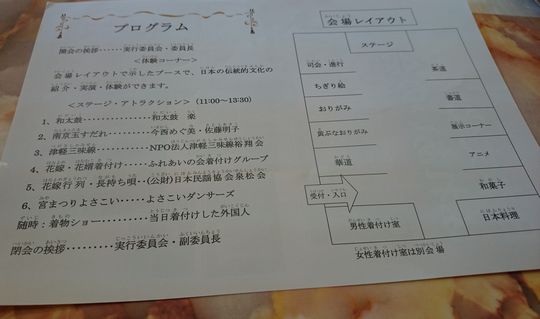 プログラム
開会の挨拶……実行委員会・委員長
<体験コーナー>
会場レイアウトで示したブースで、日本の伝統的文化の
紹介・実演・体験ができます。
<ステージ・アトラクション> (11:00～13:30)
1、和太鼓………………和太鼓 楽
2、南京玉すだれ…………今西めぐ美・佐藤明子
3、津軽三味線……………NPO法人津軽三味線裕翔会
4、花嫁・花婿着付け……ふれあいの会着付けグループ
5、花嫁行列・長持ち唄‥(公財)日本民謡協会泉松会
6、宮まつりよさこい……よさこいダンサーズ
随時：着物ショー…………当日着付けした外国人
閉会の挨拶………実行委員会・副委員長
会場レイアウト
ステージ
司会・進行
ちぎり絵
おりがみ
貴ぶなおりがみ
華道
受付・入口
男性着付け室
茶道
書道
展示コーナー
アニメ
和菓子
日本料理
女性着付け室は別会場